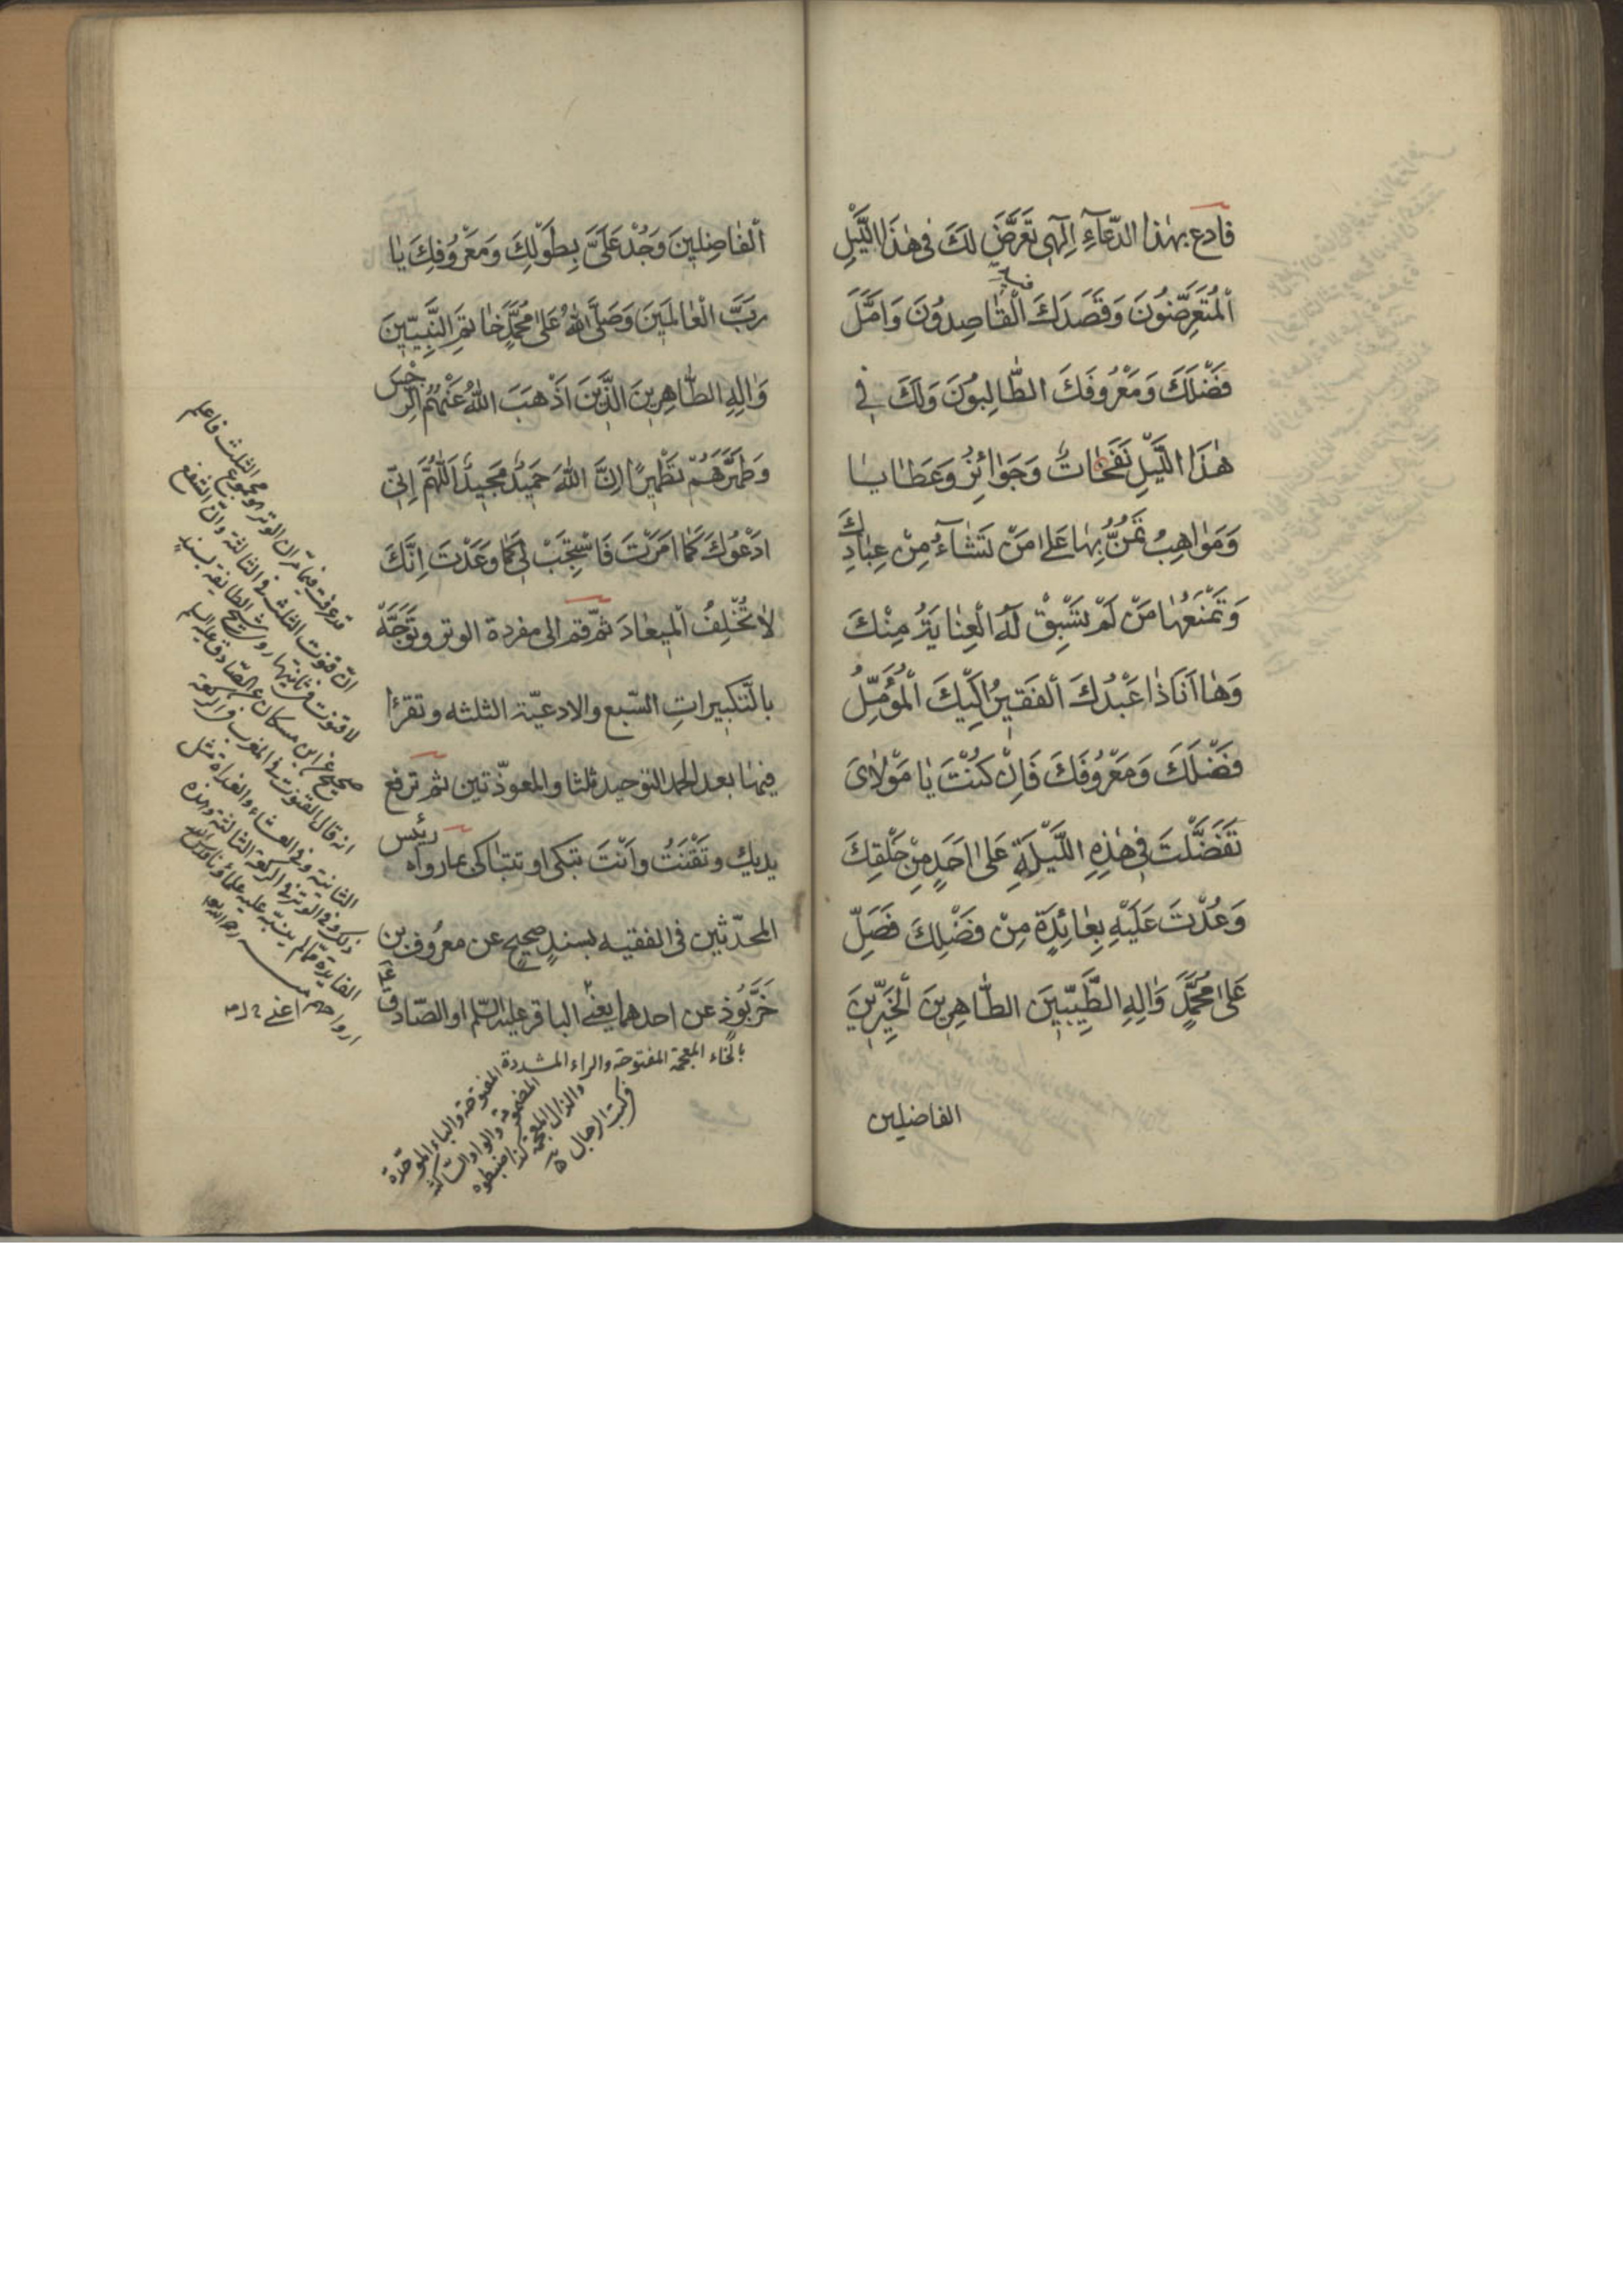 فادع بهٰذا الدّعآءِ اِلٰهي تَعَرَّضَ لَكَ في هٰذَا اللَّيْلِ
الْمُتَعَرِّضُونَ وَقَصَدَكَ الْقٰاصِدُونَ وَاَمَّلَ
فَضْلَكَ وَمَعْرُوفَكَ الطّٰالِبُونَ وَلَكَ في
هٰذَا اللَّيْلِ نَفَحٰاتٌ وَجَوٰائِزُ وَعَطٰايٰا
وَمَوٰاهِبُ تَمُنُّ بِهٰا عَلىٰ مَنْ تَشٰآءُ مِنْ عِبٰادِكَ
وَتَمْنَعُهٰا مَنْ لَمْ تَسْبِقْ لَهُ الْعِنٰايَةُ مِنْكَ
وَهٰا اَنَا ذٰا عَبْدُكَ الْفَقيرُ اِلَيْكَ الْمُؤَمِّلُ
فَضْلَكَ وَمَعْرُوفَكَ فَاِنْ كُنْتَ يٰا مَوْلٰايَ
تَفَضَّلْتَ في هٰذِهِ اللَّيْلَةِ عَلىٰ اَحَدٍ مِنْ خَلْقِكَ
وَعُدْتَ عَلَيْهِ بِعٰائِدَةٍ مِنْ فَضْلِكَ فَصَلِّ
عَلىٰ مُحَمَّدٍ وَاٰلِهِ الطَّيِّبينَ الطّٰاهِرينَ الْخَيِّرينَ
الفاضلين
الْفٰاضِلينَ وَجُدْ عَلَيَّ بِطَوْلِكَ وَمَعْرُوفِكَ يٰا
رَبَّ الْعٰالَمينَ وَصَلَّى اللهُ عَلىٰ مُحَمَّدٍ خٰاتَمِ النَّبِيّينَ
وَاٰلِهِ الطّٰاهِرينَ الَّذينَ اَذْهَبَ اللهُ عَنْهُمُ الرِّجْسَ
وَطَهَّرَهُمْ تَطْهيرًا اِنَّ اللهَ حَميدٌ مَجيدٌ اَللّٰهُمَّ اِنّي
اَدْعُوكَ كَمٰا اَمَرْتَ فَاسْتَجِبْ لي كَمٰا وَعَدْتَ اِنَّكَ
لٰا تُخْلِفُ الْميعٰادَ ثمّ قم الى مفردة الوتر وتَوَجَّهْ
بالتَّكبيراتِ السّبع والادعيّة الثلثه وتقرأ
فيهٰا بعد الحمد التوحيد ثلثا والمعوذّتين ثم ترفع
يديك وتَقْنَتُ واَنْتَ تبكى او تتبٰاكى بما رواه رئيس
المحدّثين فى الفقيه بسندٍ صحيحٍ عن معرُوف بن
خَرَّبُوذٍ عن احدهما يعنى الباقر عليه السّلم او الصّادق
بالخاء المعجمة المفتوحة والراء المشددة المفتوحة والباء الموحّدة
المضمومة والواو السّاكنة
والذال المعجمة كذا ضبطوه
في كتب الرجال
قد عرفت فيما مر ان الوتر مجموع الثلث فاعلم
انّ قنوت الثلث في الثالثة وان الشفع
لا قنوت في ثانيتها روى شيخ الطائفة بسند
صحيح عن ابن مسكان عن الصّادق عليه السلم
انه قال القنوت في المغرب في الركعة
الثانية وفي العشاء والغداة مثل
ذلك وفي الوتر في الركعة الثالثة وهذه
الفايدة مما لم ينبّه عليه علماؤنا قدس الله
ارواحهم منه رحمه الله